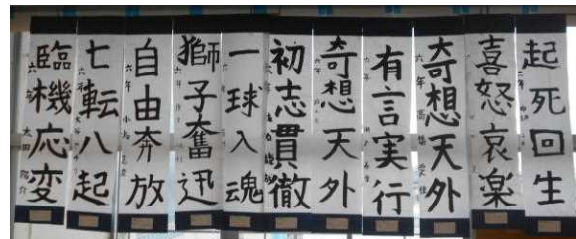 起死回生
喜怒哀楽
奇想天外
六年
有言実行
奇想天外
初志貫徹
一球入魂
獅子奮迅
自由奔放
六年
七転八起
六年
臨機応変
六年
太田